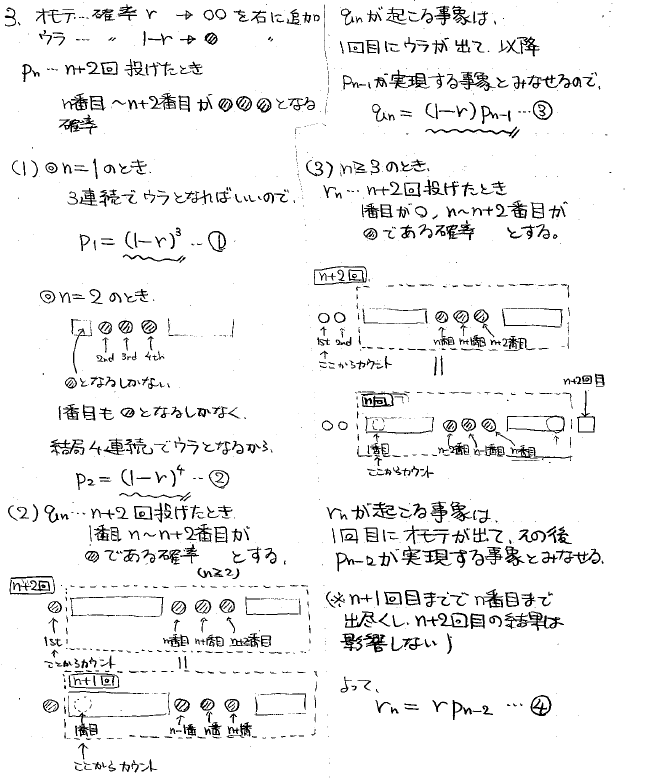 3. オモテ…確率 r → ○○を右に追加
ウラ … 〃 1-r → ● 〃
pn … n+2回 投げたとき
n番目~n+2番目が●●●となる
確率
(1) ◎n=1のとき.
3連続でウラとなればいいので.
p1 = (1-r)^3 …①
◎n=2のとき.
2nd 3rd 4th
●となるしかない.
1番目も●となるしかなく.
結局4連続でウラとなるから.
p2 = (1-r)^4 …②
(2) qn … n+2回投げたとき
1番目, n~n+2番目が
●である確率 とする.
(n≧2)
n+2回
1st n番目 n+1番目 n+2番目
ここからカウント
n+1回
1番目 n-1番 n番 n+1番
ここからカウント
qnが起こる事象は、
1回目にウラが出て. 以降
pn-1が実現する事象とみなせるので.
qn = (1-r)pn-1 …③
(3) n≧3のとき.
rn … n+2回投げたとき
1番目が○, n~n+2番目が
●である確率 とする。
n+2回
1st 2nd n番目 n+1番目 n+2番目
ここからカウント
n+2回目
n回
1番目 n-2番目 n-1番目 n番目
ここからカウント
rnが起こる事象は.
1回目にオモテが出て, その後
pn-2が実現する事象とみなせる.
(※n+1回目まででn番目まで
出尽くし. n+2回目の結果は
影響しない)
よって,
rn = r pn-2 …④